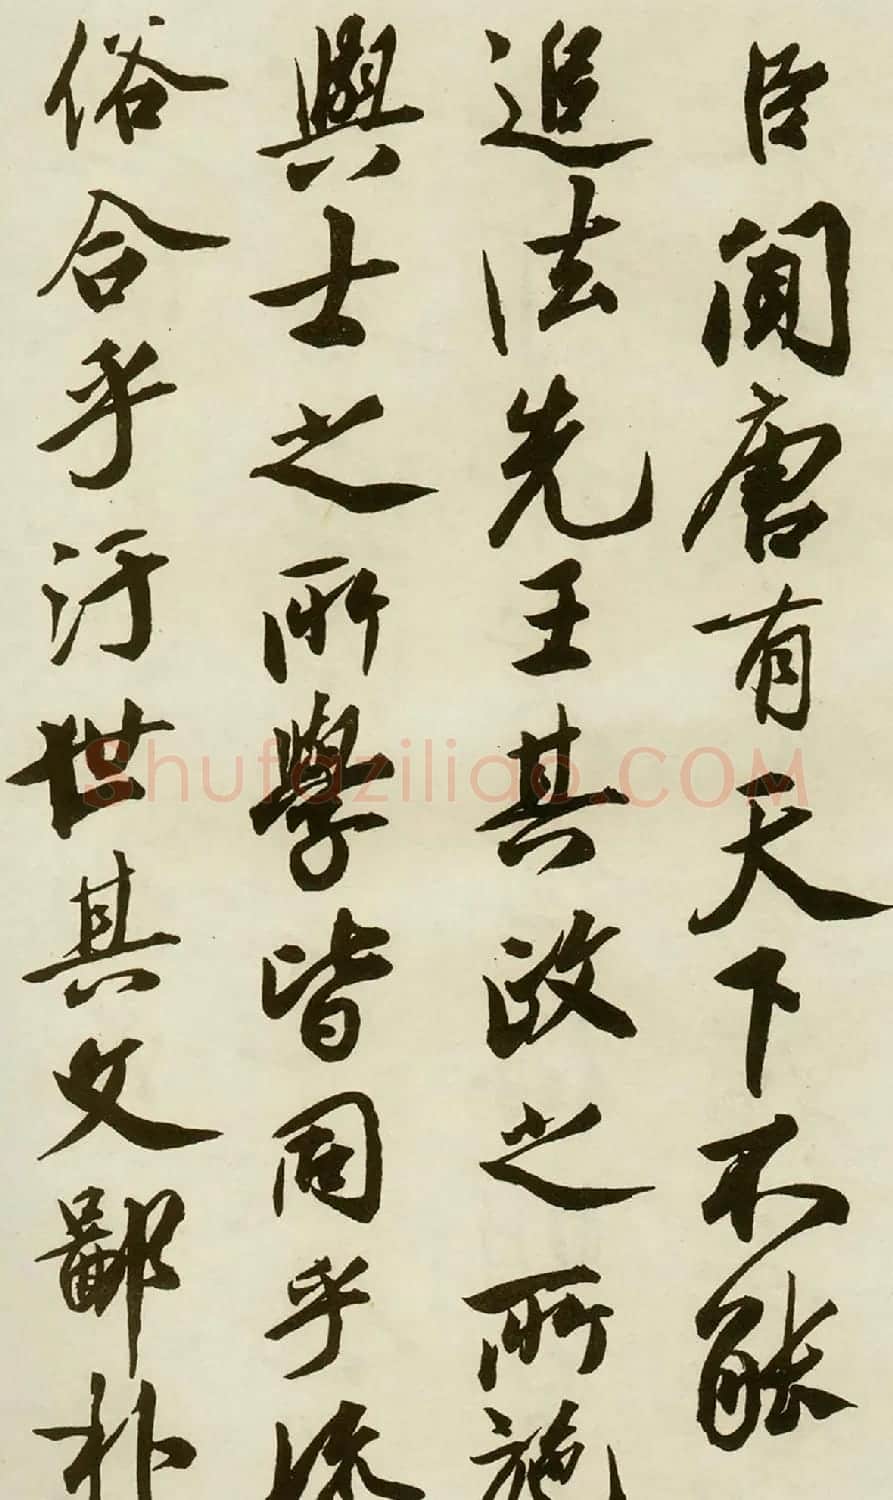 臣聞唐有天下不能
追法先王其政之所施
與士之所學皆同乎流
俗合乎汙世其文鄙朴
Shufaziliao.COM